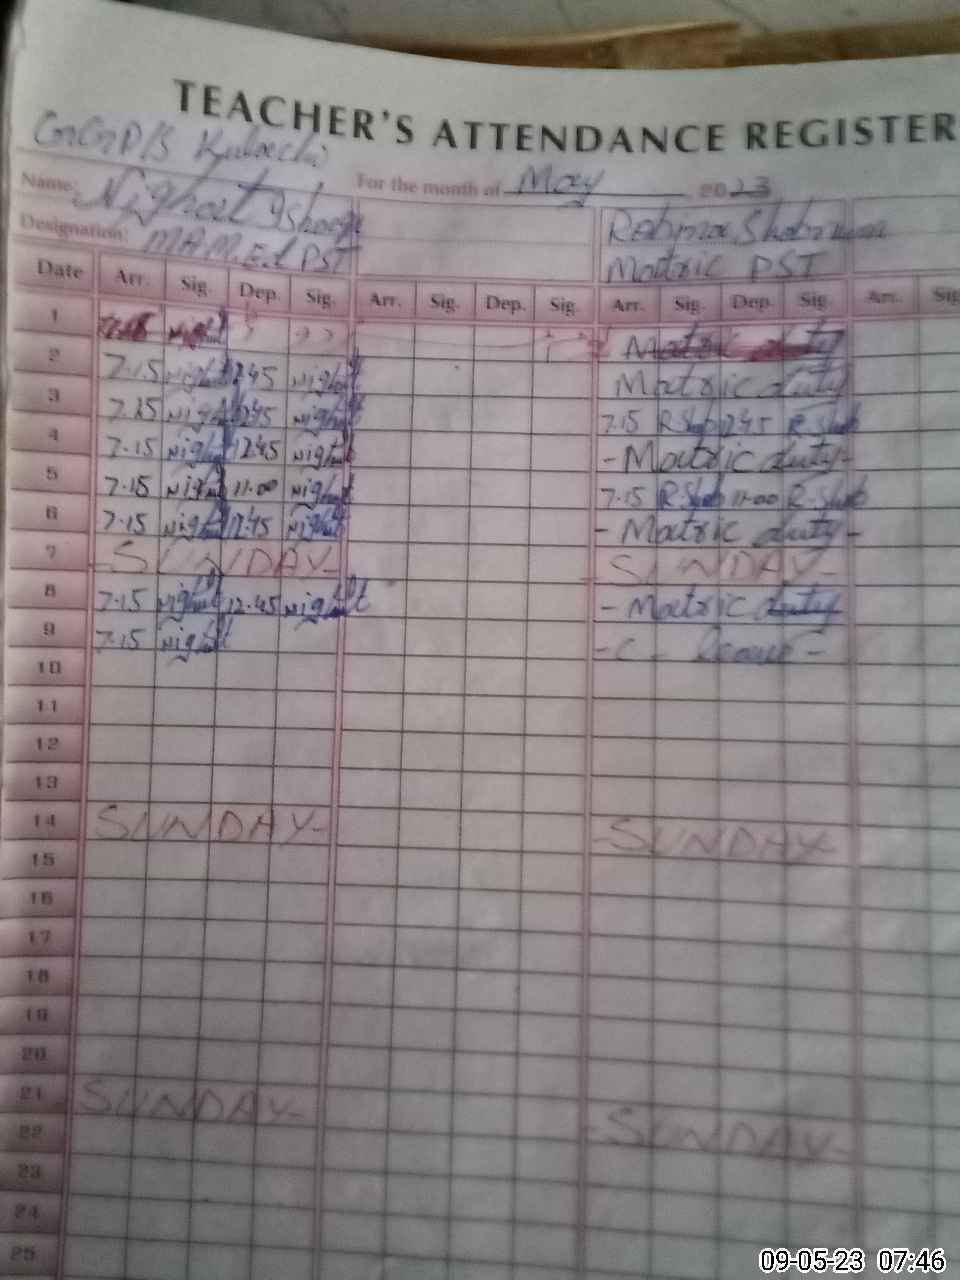 TEACHER'S ATTENDANCE REGISTER
GGPS Kulachi
Name: Nighat For the month of May 2023
Robina Shabnam
Designation: M.A M.Ed PST Matric PST
Date Arr. Sig. Dep. Sig. Arr. Sig. Dep. Sig. Arr. Sig. Dep. Sig Arr. Sig
1 Matric duty
2 7.15 Night 12.45 Night Matric duty
3 7.15 Night 12.45 Night 7.15 R.Shab 12.45 R.Shab
4 7.15 Night 12.45 Night - Matric duty -
5 7.15 Night 11.00 Night 7.15 R.Shab 11.00 R.Shab
6 7.15 Night 12.45 Night - Matric duty -
7 - SUNDAY - SUNDAY -
8 7.15 Night 12.45 Night - Matric duty
9 7.15 Night - C - leave -
10
11
12
13
14 SUNDAY - - SUNDAY
15
16
17
18
19
20
21 SUNDAY -
22 - SUNDAY -
23
24
25
09-05-23 07:46